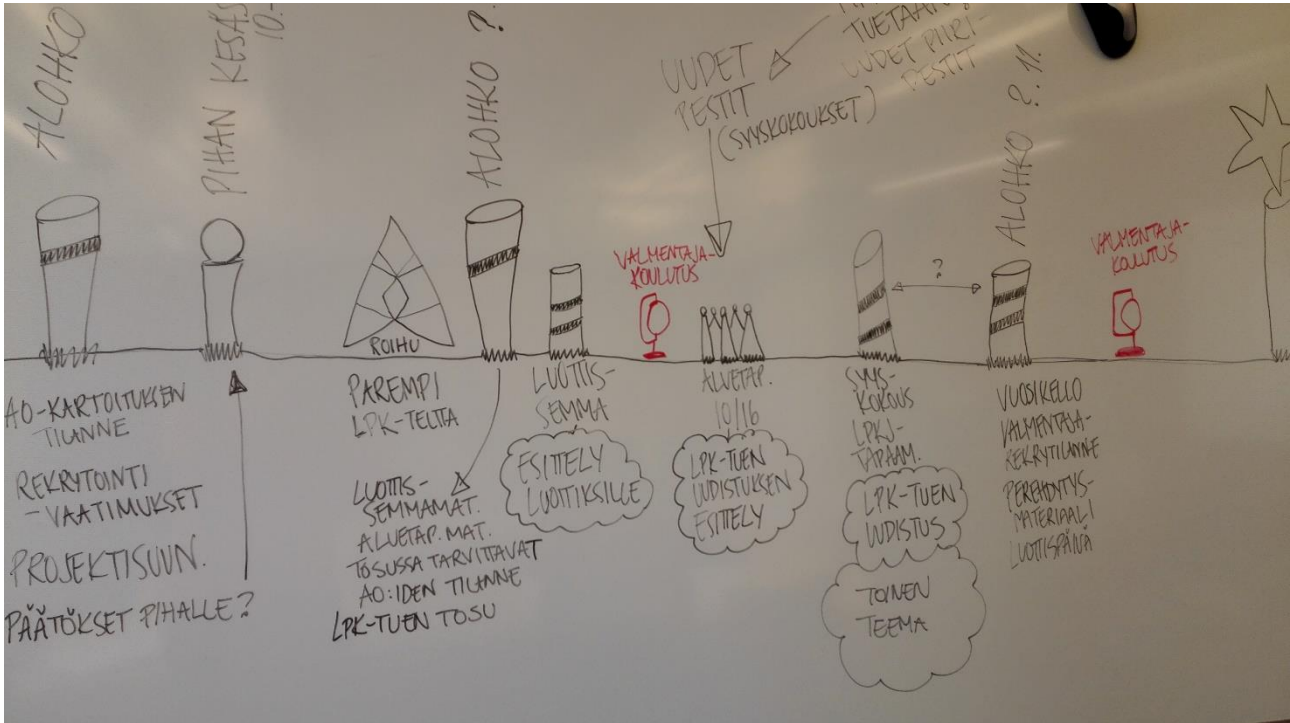 ALOHKO
PIHAN KESÄS
10.-
ALOHKO ?.
UUDET
PESTIT
(SYYSKOKOUKSET)
TUETAAN
UUDET PIIRI-
PESTIT
ALOHKO ?.11.
ROIHU
VALMENTAJA-
KOULUTUS
?
VALMENTAJA-
KOULUTUS
AO-KARTOITUKSEN
TILANNE
REKRYTOINTI
-VAATIMUKSET
PROJEKTISUUN.
PÄÄTÖKSET PIHALLE?
PAREMPI
LPK-TELTTA
LUOTTIS-
SEMMAMAT.
ALUETAP. MAT.
TOSUSSA TARVITTAVAT
AO:IDEN TILANNE
LPK-TUEN TOSU
LUOTTIS-
SEMMA
ESITTELY
LUOTIKSILLE
ALUETAP.
10/16
LPK-TUEN
UUDISTUKSEN
ESITTELY
SYYS-
KOKOUS
LPKJ-
TAPAAM.
LPK-TUEN
UUDISTUS
TOINEN
TEEMA
VUOSIKELLO
VALMENTAJA-
REKRYTILANNE
PEREHDYTYS-
MATERIAALI
LUOTTISPÄIVÄ